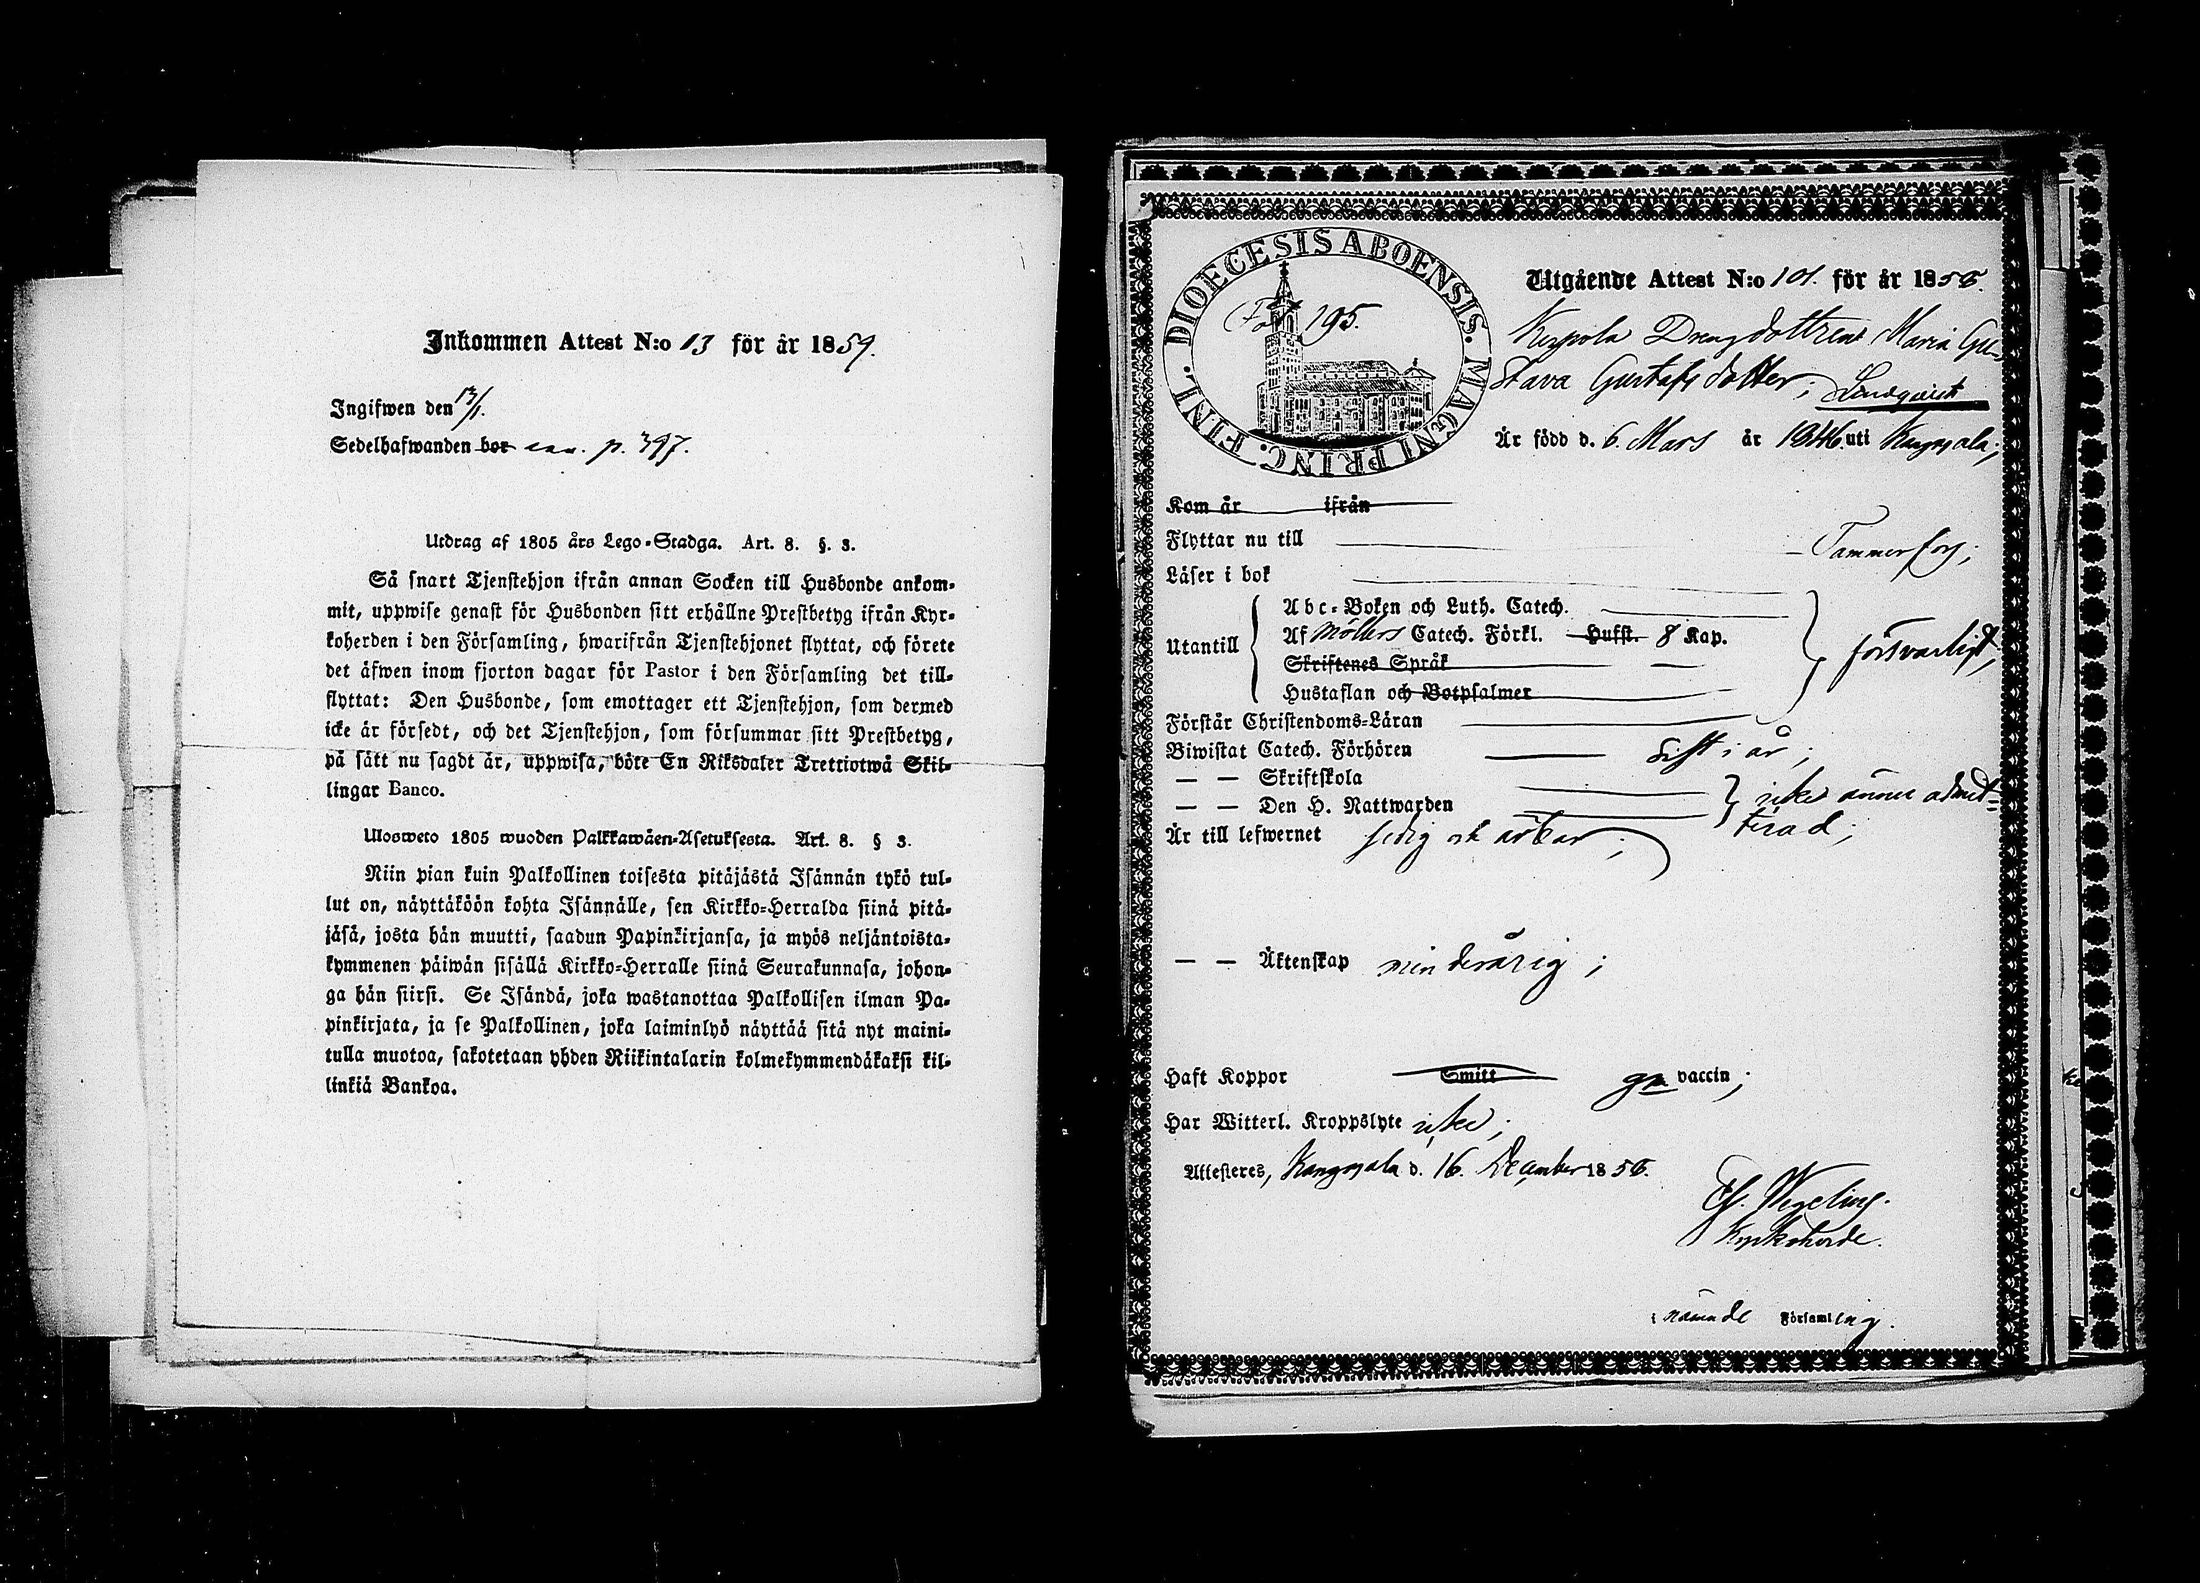 Inkommen Attest N:o 13 för år 1859.
Ingifwen den 13/1.
Sedelhafwanden bor p. 397.
Utdrag af 1805 års Lego-Stadga. Art. 8. §. 3.
Så snart Tjenstehjon ifrån annan Socken till Husbonde ankom-
mit, uppwise genast för Husbonden sitt erhållne Prestbetyg ifrån Kyr-
koherden i den Församling, hwarifrån Tjenstehjonet flyttat, och förete
det äfwen inom fjorton dagar för Pastor i den Församling det till-
flyttat: Den Husbonde, som emottager ett Tjenstehjon, som dermed
icke är försedt, och det Tjenstehjon, som försummar sitt Prestbetyg,
på sätt nu sagdt är, uppwisa, böte En Riksdaler Trettiotwå Skil-
lingar Banco.
Ulosweto 1805 wuoden Palkkawäen-Asetuksesta. Art. 8. § 3.
Niin pian kuin Palkollinen toisesta pitäjästä Isännän tykö tul-
lut on, näyttäköön kohta Isännälle, sen Kirkko-Herralda siinä pitä-
jäsä, josta hän muutti, saadun Papinkirjansa, ja myös neljäntoista-
kymmenen päiwän sisällä Kirkko-Herralle siinä Seurakunnasa, johon-
ga hän siirsi. Se Isändä, joka wastanottaa Palkollisen ilman Pa-
pinkirjata, ja se Palkollinen, joka laiminlyö näyttää sitä nyt maini-
tulla muotoa, sakotetaan yhden Riikintalarin kolmekymmendäkaksi kil-
linkiä Bankoa.
DIOECESIS ABOENSIS. MAGNI PRINC. FINL.
Fol. 195.
Utgående Attest N:o 101. för år 1858.
Drengdottren Maria Gu-
stava Gustafsdotter; Lindqvist
Är född d. 6. Mars år 1846 uti Kangasala;
Kom år ifrån
Flyttar nu till Tammerfors;
Läser i bok
Utantill
Abc-Boken och Luth. Catech.
Af Möllers Catech. Förkl. Hufst. 8 Kap.
Skriftenes Språk
Hustaflan och Botpsalmer
försvarligt;
Förstår Christendoms-Läran
Biwistat Catech. Förhören sist i år;
— — Skriftskola
— — Den H. Nattwarden icke ännu admit-
terad;
Är till lefwernet sedig och ärbar;
— — Äktenskap minderårig;
Haft Koppor Smitt gm vaccin;
Har Witterl. Kroppslyte icke;
Attesteres, Kangasala d. 16. December 1858.
Wegelius.
Kyrkoherde.
i nämnde Församling.